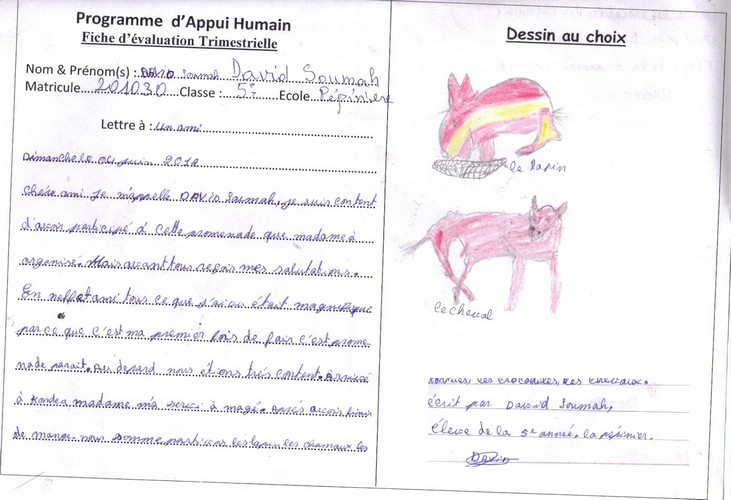 Programme d'Appui Humain
Fiche d'évaluation Trimestrielle
Nom & Prénom(s) : DAVID Soumah David Soumah
Matricule 201030 Classe : 5è Ecole Pépinière
Lettre à : un ami
Dimanche le juin
Chère ami je m'appelle DAVID Soumah, je suis content
d'avoir participé à cette promenade que madame à
organisé. Mais avant tous reçois mes salutations.
En neffet ami tous ce que j'ai vu était magnifique
par ce que c'est ma premièr fois de fair c'est prome
nade parait. Au depard nous étions très content. Arrivée
à madame m'a servi à magé. avoir
de manger nous somme partir les chamaux les
Dessin au choix
le lapin
le cheval
tortues, les crocodiles, les
écrit par David Soumah,
élève de la 5e année, la pépinier.